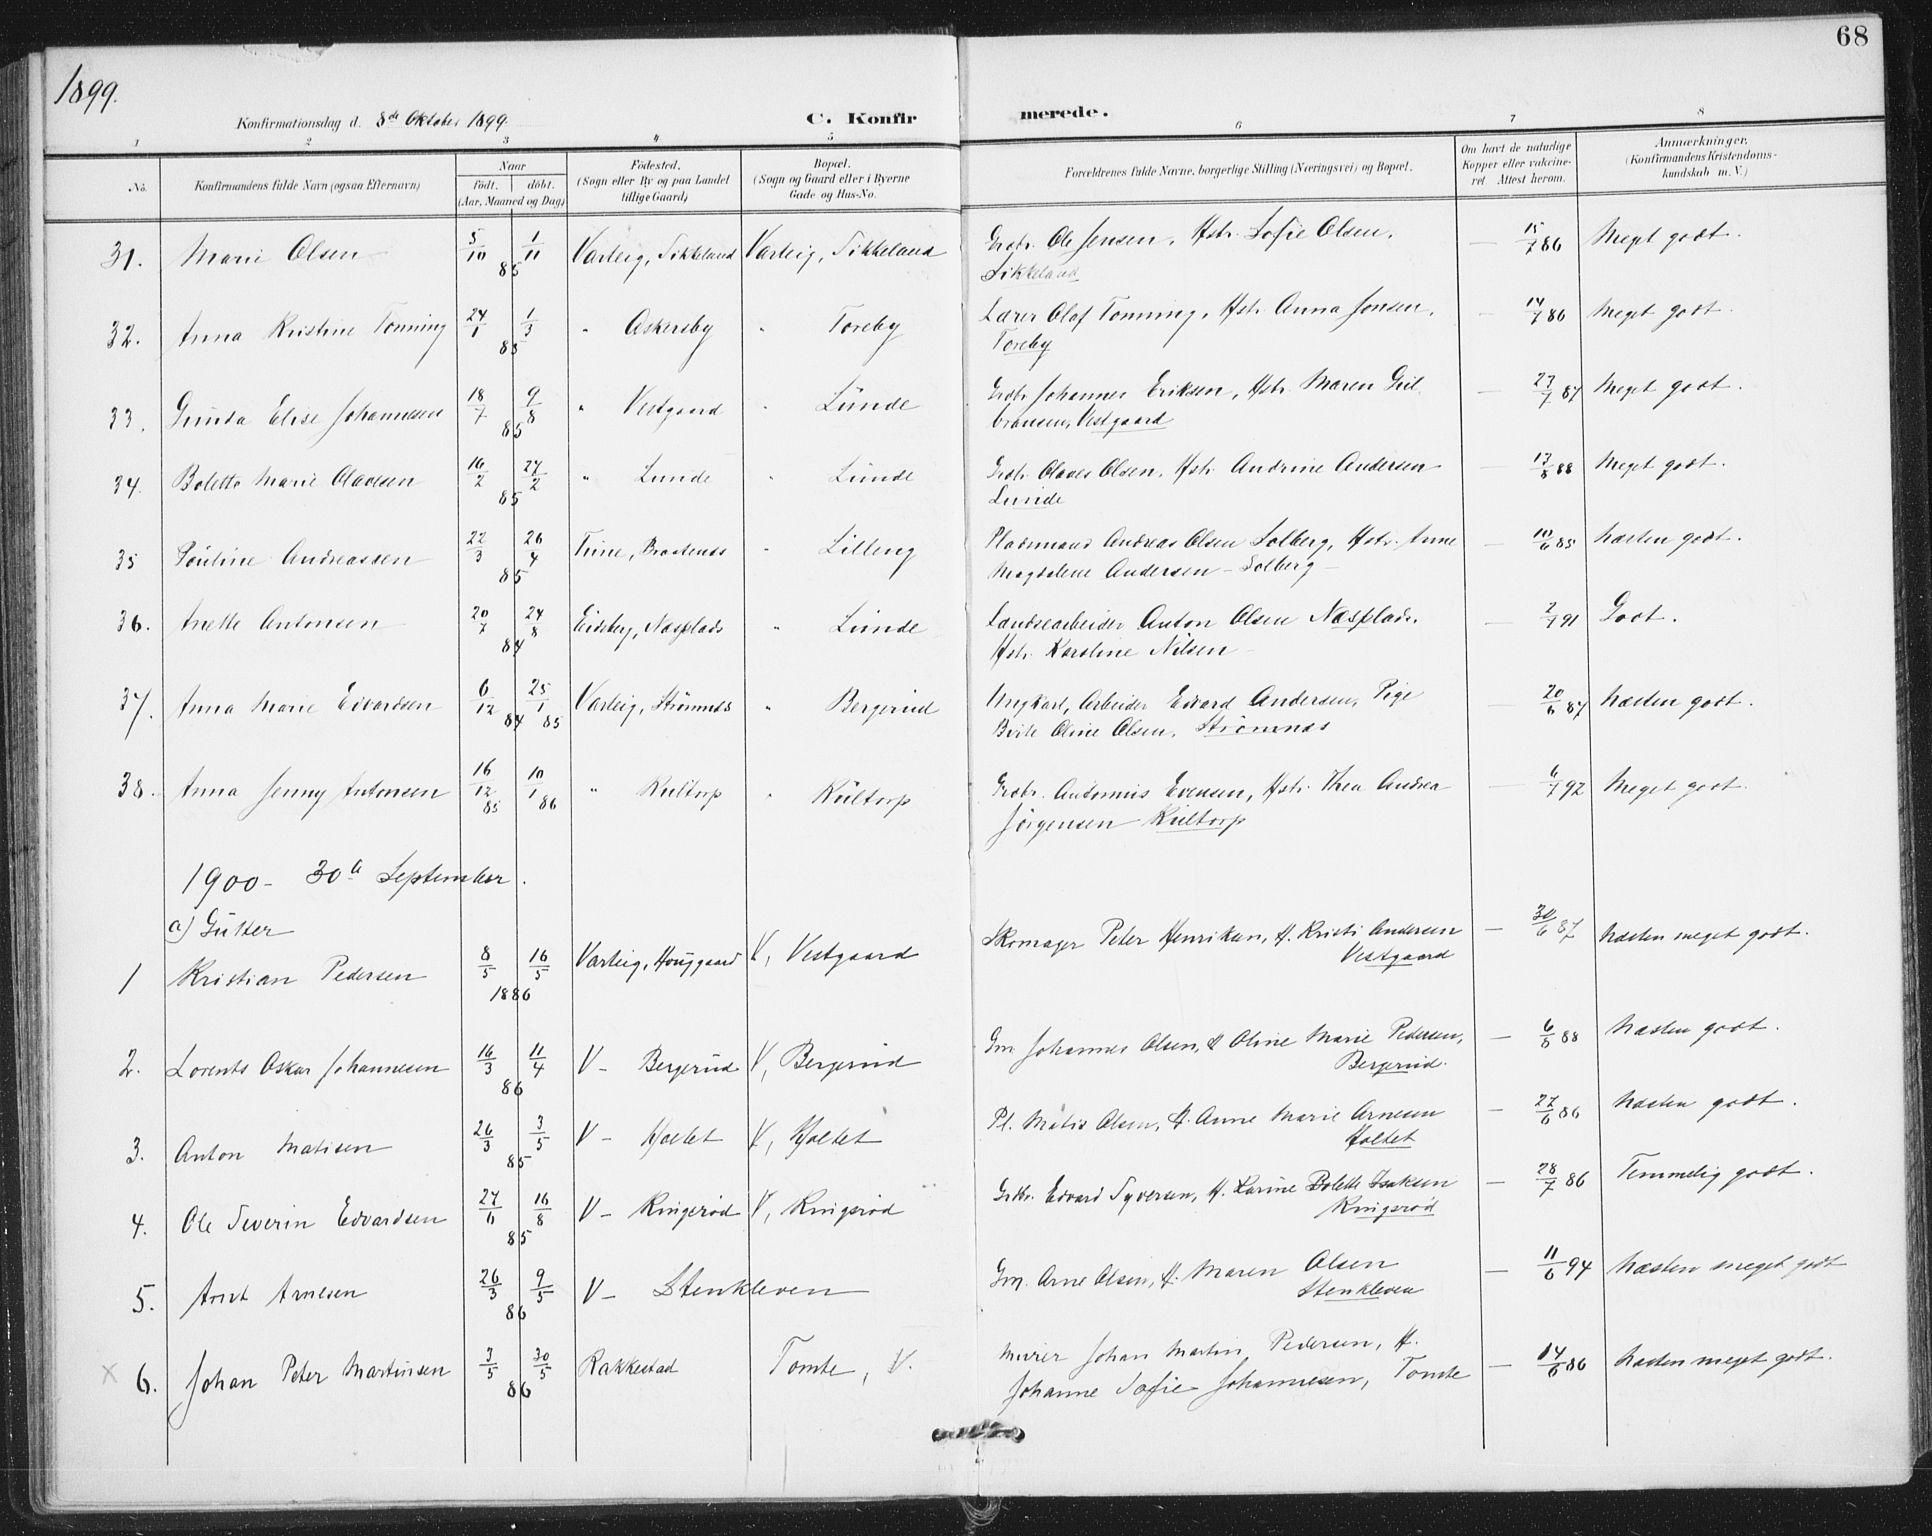 68
1899.
Konfirmationsdag d. 8de Oktober 1899. C. Konfirmerede.
1 2 3 4 5 6 7 8
No. Konfirmandens fulde Navn (ogsaa Efternavn) Naar født. døbt. (Aar, Maaned og Dag) Fødested. (Sogn eller By og paa Landet tillige Gaard) Bopæl. (Sogn og Gaard eller i Byerne Gade og Hus-No. Forældrenes fulde Navne, borgerlige Stilling (Næringsvei) og Bopæl. Om havt de naturlige Kopper eller vakcineret Attest herom. Anmærkninger. (Konfirmandens Kristendomskundskab m. V.)
31. Marie Olsen 5/10 1/11 85 Varteig, Tikkeland Varteig, Tikkeland Grdbr. Ole Jensen, Hstr. Sofie Olsen, — 15/7 86 Meget godt.
Tikkeland
32. Anna Kristine Tonning 24/1 1/3 85 " Askersby " Toreby Lærer Olaf Tonning, Hstr. Anna Jonsen, — 14/7 86 Meget godt.
Toreby
33. Gunda Elise Johannesen 18/7 9/8 85 " Vestgaard " Lunde Grdbr. Johannes Eriksen, Hstr. Maren Gul- — 27/7 87 Meget godt.
bransen, Vestgaard
34. Bolette Marie Olavesen 16/2 27/2 85 " Lunde " Lunde Grdbr. Olaves Olsen, Hstr. Andrine Andersen — 17/6 88 Meget godt.
Lunde
35 Pouline Andreassen 22/3 26/4 85 Tune, " Lilleng Pladsmand Andreas Olsen Solberg, Hstr. Anne — 10/6 85 Næsten godt.
Magdalene Andersen – Solberg –
36. Anette Antonsen 20/7 24/8 84 Eidsberg, Næsplads " Lunde Landsearbeider Anton Olsen Næsplads, — 2/7 91 Godt.
Hstr. Karoline Nilsen –
37. Anna Marie Edvardsen 6/12 84 25/1 85 Varteig, Strømnes " Bergerud Ungkarl, Arbeider Edvard Andersen, Pige — 20/6 87 Næsten godt.
Berte Oline Olsen, Strømnes
38. Anna Jenny Antonsen 16/12 85 10/1 86 " Kultorp " Kultorp Grdbr. Antonius Evensen, Hstr. Thea Andrea — 6/7 92 Meget godt.
Jørgensen Kultorp
1900 – 30te September.
a) Gutter
1 Kristian Pedersen 8/5 16/5 1886 Varteig, Houggaard V, Vestgaard Skomager Peter Henriksen, H. Kristi Andersen — 30/6 87 Næsten meget godt.
Vestgaard
2. Lorents Oskar Johannesen 16/3 11/4 86 V – Bergerud V, Bergerud Gm. Johannes Olsen, H. Oline Marie Pedersen, — 6/6 88 Næsten godt.
Bergerud.
3. Anton Matisen 26/3 3/5 85 V – Holtet V, Holtet Pl. Matis Olsen, H. Anne Marie Arnesen — 27/6 86 Næsten godt.
Holtet
4. Ole Severin Edvardsen 27/6 16/8 85 V – Ringsrød V, Ringsrød Grdbr. Edvard Syversen, H. Karine Bolette Isaksen — 28/7 86 Temmelig godt.
Ringsrød
5. Arnt Arnesen 26/3 9/5 86 V – Stenkleven Gm. Arne Olsen, H. Maren Olsen — 11/6 94 Næsten meget godt
Stenkleven
x 6. Johan Peter Martinsen 3/5 30/5 86 Rakkestad Tomte, V. Murer Johan Martin Pedersen, H. — 14/6 86 Næsten meget godt.
Johanne Sofie Johannesen, Tomte